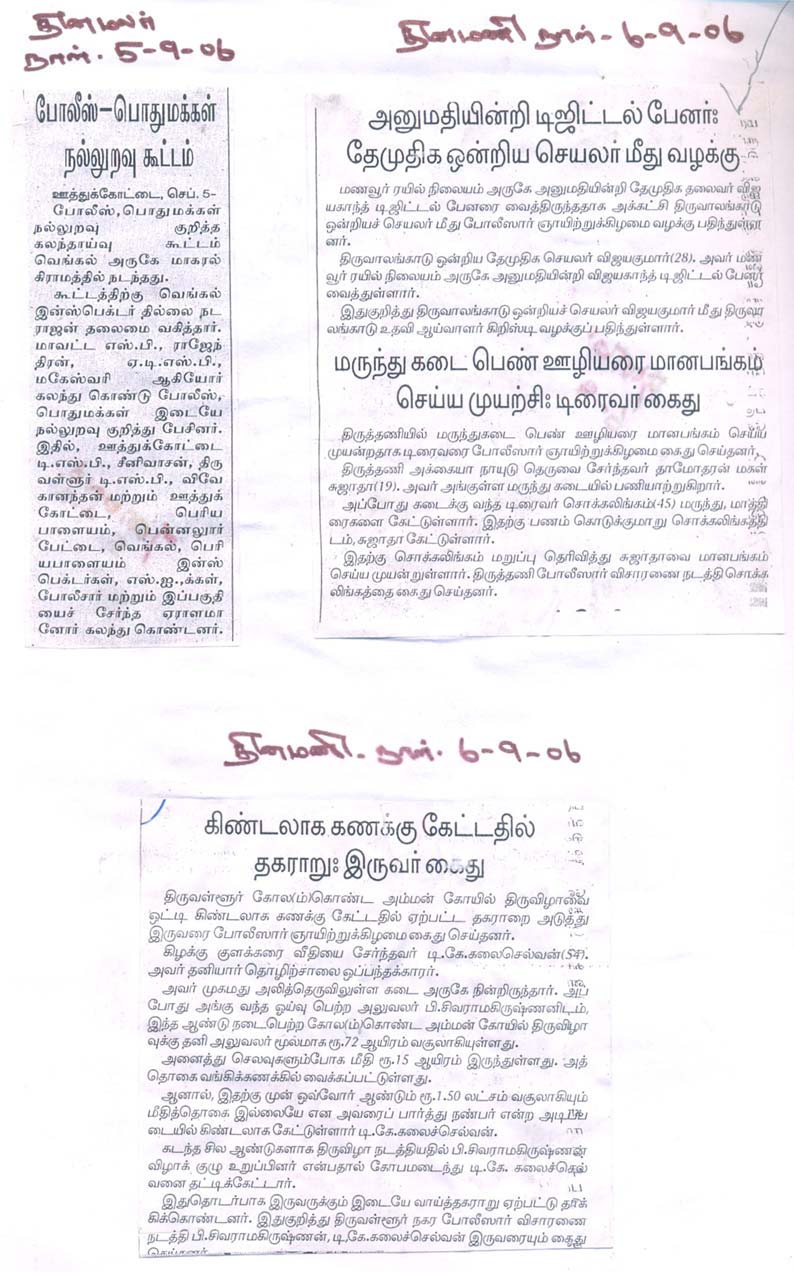 தினமலர்
நாள். 5-9-06
போலீஸ்-பொதுமக்கள்
நல்லுறவு கூட்டம்
ஊத்துக்கோட்டை, செப். 5-
போலீஸ், பொதுமக்கள்
நல்லுறவு குறித்த
கலந்தாய்வு கூட்டம்
வெங்கல் அருகே மாகரல்
கிராமத்தில் நடந்தது.
கூட்டத்திற்கு வெங்கல்
இன்ஸ்பெக்டர் தில்லை நட
ராஜன் தலைமை வகித்தார்.
மாவட்ட எஸ்.பி., ராஜேந்
திரன், ஏ.டி.எஸ்.பி.,
மகேஸ்வரி ஆகியோர்
கலந்து கொண்டு போலீஸ்,
பொதுமக்கள் இடையே
நல்லுறவு குறித்து பேசினர்.
இதில், ஊத்துக்கோட்டை
டி.எஸ்.பி., சீனிவாசன், திரு
வள்ளூர் டி.எஸ்.பி., விவே
கானந்தன் மற்றும் ஊத்துக்
கோட்டை, பெரிய
பாளையம், பென்னலூர்
பேட்டை, வெங்கல், பெரி
யபாளையம் இன்ஸ்
பெக்டர்கள், எஸ்.ஐ.,க்கள்,
போலீசார் மற்றும் இப்பகுதி
யைச் சேர்ந்த ஏராளமா
னோர் கலந்து கொண்டனர்.
தினமணி நாள் - 6-9-06
அனுமதியின்றி டிஜிட்டல் பேனர்:
தேமுதிக ஒன்றிய செயலர் மீது வழக்கு
மணவூர் ரயில் நிலையம் அருகே அனுமதியின்றி தேமுதிக தலைவர் விஜ
யகாந்த் டிஜிட்டல் பேனரை வைத்திருந்ததாக அக்கட்சி திருவாலங்காடு
ஒன்றியச் செயலர் மீது போலீஸார் ஞாயிற்றுக்கிழமை வழக்கு பதிந்துள்ள
னர்.
திருவாலங்காடு ஒன்றிய தேமுதிக செயலர் விஜயகுமார்(28). அவர் மண
வூர் ரயில் நிலையம் அருகே அனுமதியின்றி விஜயகாந்த் டிஜிட்டல் பேனர்
வைத்துள்ளார்.
இதுகுறித்து திருவாலங்காடு ஒன்றியச் செயலர் விஜயகுமார் மீது திருவா
லங்காடு உதவி ஆய்வாளர் கிறிஸ்டி வழக்குப் பதிந்துள்ளார்.
மருந்து கடை பெண் ஊழியரை மானபங்கம்
செய்ய முயற்சி: டிரைவர் கைது
திருத்தணியில் மருந்துகடை பெண் ஊழியரை மானபங்கம் செய்ய
முயன்றதாக டிரைவரை போலீஸார் ஞாயிற்றுக்கிழமை கைது செய்தனர்.
திருத்தணி அக்கையா நாயுடு தெருவை சேர்ந்தவர் தாமோதரன் மகள்
சுஜாதா(19). அவர் அங்குள்ள மருந்து கடையில் பணியாற்றுகிறார்.
அப்போது கடைக்கு வந்த டிரைவர் சொக்கலிங்கம்(45) மருந்து, மாத்தி
ரைகளை கேட்டுள்ளார். இதற்கு பணம் கொடுக்குமாறு சொக்கலிங்கத்தி
டம், சுஜாதா கேட்டுள்ளார்.
இதற்கு சொக்கலிங்கம் மறுப்பு தெரிவித்து சுஜாதாவை மானபங்கம்
செய்ய முயன்றுள்ளார். திருத்தணி போலீஸார் விசாரணை நடத்தி சொக்க
லிங்கத்தை கைது செய்தனர்.
தினமணி - நாள். 6-9-06
கிண்டலாக கணக்கு கேட்டதில்
தகராறு: இருவர் கைது
திருவள்ளூர் கோல(ம்)கொண்ட அம்மன் கோயில் திருவிழாவை
ஒட்டி கிண்டலாக கணக்கு கேட்டதில் ஏற்பட்ட தகராறை அடுத்து
இருவரை போலீஸார் ஞாயிற்றுக்கிழமை கைது செய்தனர்.
கிழக்கு குளக்கரை வீதியை சேர்ந்தவர் டி.கே.கலைசெல்வன்(54).
அவர் தனியார் தொழிற்சாலை ஒப்பந்தக்காரர்.
அவர் முகமது அலித்தெருவிலுள்ள கடை அருகே நின்றிருந்தார். அப்
போது அங்கு வந்த ஓய்வு பெற்ற அலுவலர் பி.சிவராமகிருஷ்ணனிடம்,
இந்த ஆண்டு நடைபெற்ற கோல(ம்)கொண்ட அம்மன் கோயில் திருவிழா
வுக்கு தனி அலுவலர் மூல்மாக ரூ.72 ஆயிரம் வசூலாகியுள்ளது.
அனைத்து செலவுகளும்போக மீதி ரூ.15 ஆயிரம் இருந்துள்ளது. அத்
தொகை வங்கிக்கணக்கில் வைக்கப்பட்டுள்ளது.
ஆனால், இதற்கு முன் ஒவ்வோர் ஆண்டும் ரூ.1.50 லட்சம் வசூலாகியும்
மீதித்தொகை இல்லையே என அவரைப் பார்த்து நண்பர் என்ற அடிப்ப
டையில் கிண்டலாக கேட்டுள்ளார் டி.கே.கலைச்செல்வன்.
கடந்த சில ஆண்டுகளாக திருவிழா நடத்தியதில் பி.சிவராமகிருஷ்ணன்
விழாக் குழு உறுப்பினர் என்பதால் கோபமடைந்து டி.கே. கலைச்செல்
வனை தட்டிக்கேட்டார்.
இதுதொடர்பாக இருவருக்கும் இடையே வாய்த்தகராறு ஏற்பட்டு தாக்
கிக்கொண்டனர். இதுகுறித்து திருவள்ளூர் நகர போலீஸார் விசாரணை
நடத்தி பி.சிவராமகிருஷ்ணன், டி.கே.கலைச்செல்வன் இருவரையும் கைது